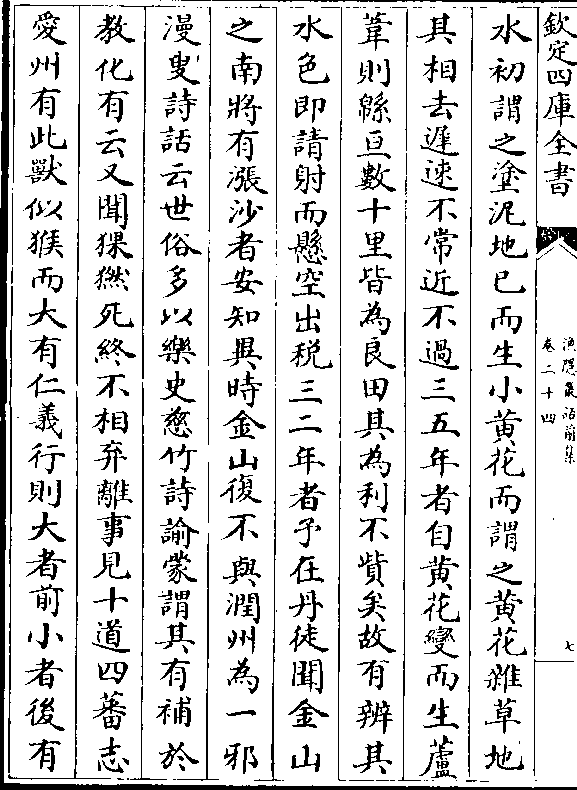 欽定四庫全書
漁隱叢話前集
卷二十四
七
水初謂之塗泥地已而生小黄花而謂之黄花雜草地
其相去遲速不常近不過三五年者自黄花變而生蘆
葦則緜亘數十里皆為良田其為利不貲矣故有辨其
水色即請射而懸空出税三二年者予在丹徒聞金山
之南將有漲沙者安知異時金山復不與潤州為一邪
漫叟詩話云世俗多以樂史慈竹詩諭蒙謂其有補於
教化有云又聞猓㹳死終不相弃離事見十道四蕃志
愛州有此獸似猴而大有仁義行則大者前小者後有